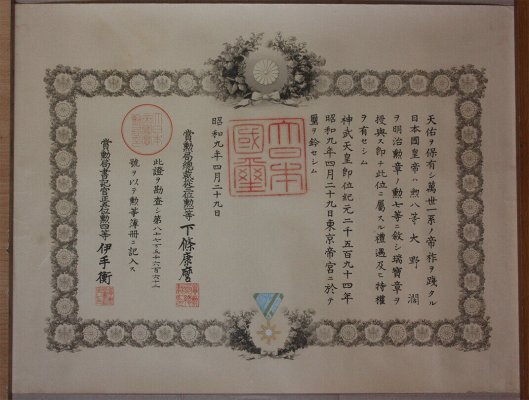 天佑ヲ保有シ萬世一系ノ帝祚ヲ踐タル
日本國皇帝ハ勲八等大野潤
ヲ明治勲章ノ勲七等ニ敍シ瑞寶章ヲ
授與ス即チ此位ニ屬スル禮遇及ヒ特權
ヲ有セシム
神武天皇即位紀元二千五百九十四年
昭和九年四月二十九日東京帝宮ニ於テ
璽ヲ鈐セシム
大日本
國璽
昭和九年四月二十九日
賞勲局總裁從三位勲二等下條康麿
此證ヲ勘査シ第八十七万五千六百六十
號ヲ以テ勲等簿冊ニ記入ス
賞勲局書記官正五位勲四等伊手衡